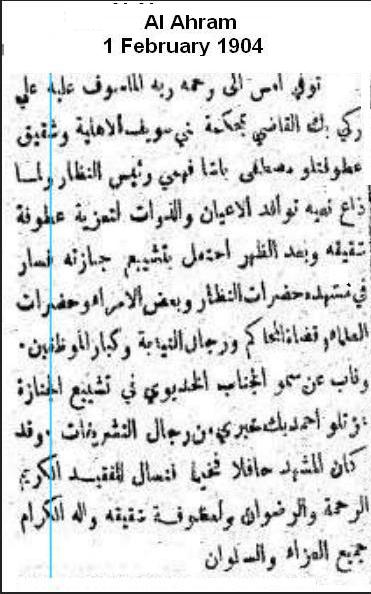 Al Ahram
1 February 1904
توفي امس الى رحمه ربه المأسوف عليه علي
زكي بك القاضي بمحكمة بني سويف الاهلية وشقيق
عطوفتلو مصطفى باشا فهمي رئيس النظار ولما
ذاع نعيه توافد الاعيان والذوات لتعزية عطوفة
شقيقه وبعد الظهر احتفل بتشييع جنازته فسار
في مشهده حضرات النظار وبعض الامراء وحضرات
العلماء وقضاة المحاكم ورجال النيابة وكبار الموظفين.
وناب عن سمو الجناب الخديوي في تشييع الجنازة
عزتلو احمد بك خيري من رجال التشريفات. وقد
كان المشهد حافلا فخيما فنسال للفقيد الكريم
الرحمة والرضوان ولعطوفة شقيقه واله الكرام
جميع العزاء والسلوان